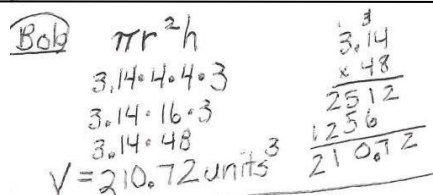 Bob
πr²h
3.14·4·4·3
3.14·16·3
3.14·48
V = 210.72 units³
1 3
3.14
x 48
2512
1256
210.72